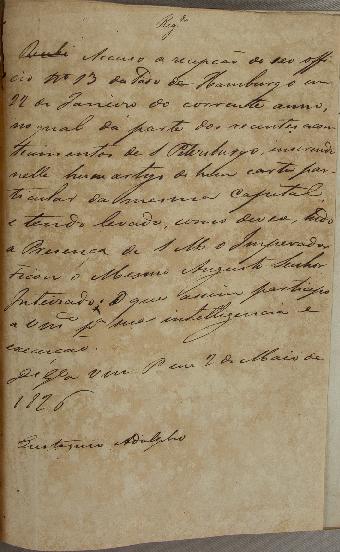 Reg.do
Recebi Accuso a recepção do seo offi
cio Nº 13 da Paso de Hamburgo em
22 de Janeiro do corrente anno,
no qual dá parte dos recentes acon
tecimentos de S. Petersburgo, inserindo
nelle hum artigo de hua carta par
ticular da mesma capital,
e tendo levado, como devia, tudo
a Presença de S. M. o Imperador
ficou o Mesmo Augusto Senhor
Inteirado; O que assim participo
a Vmce pª sua intelligencia e
execucão.
Ds Gde a Vm Pº em 2 de Maio de
1826
Adolpho